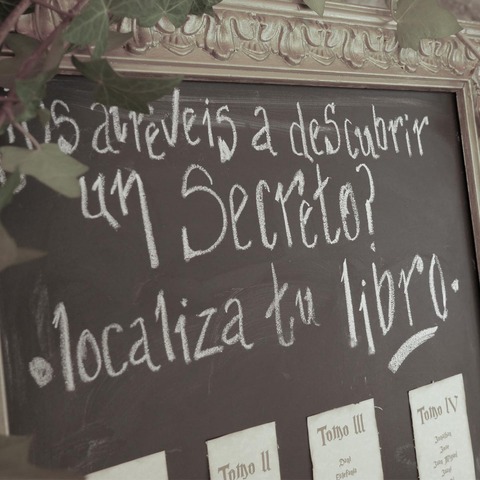 os atrevéis a descubrir
un Secreto?
.localiza tu libro.
Tomo II
Tomo III
Tomo IV